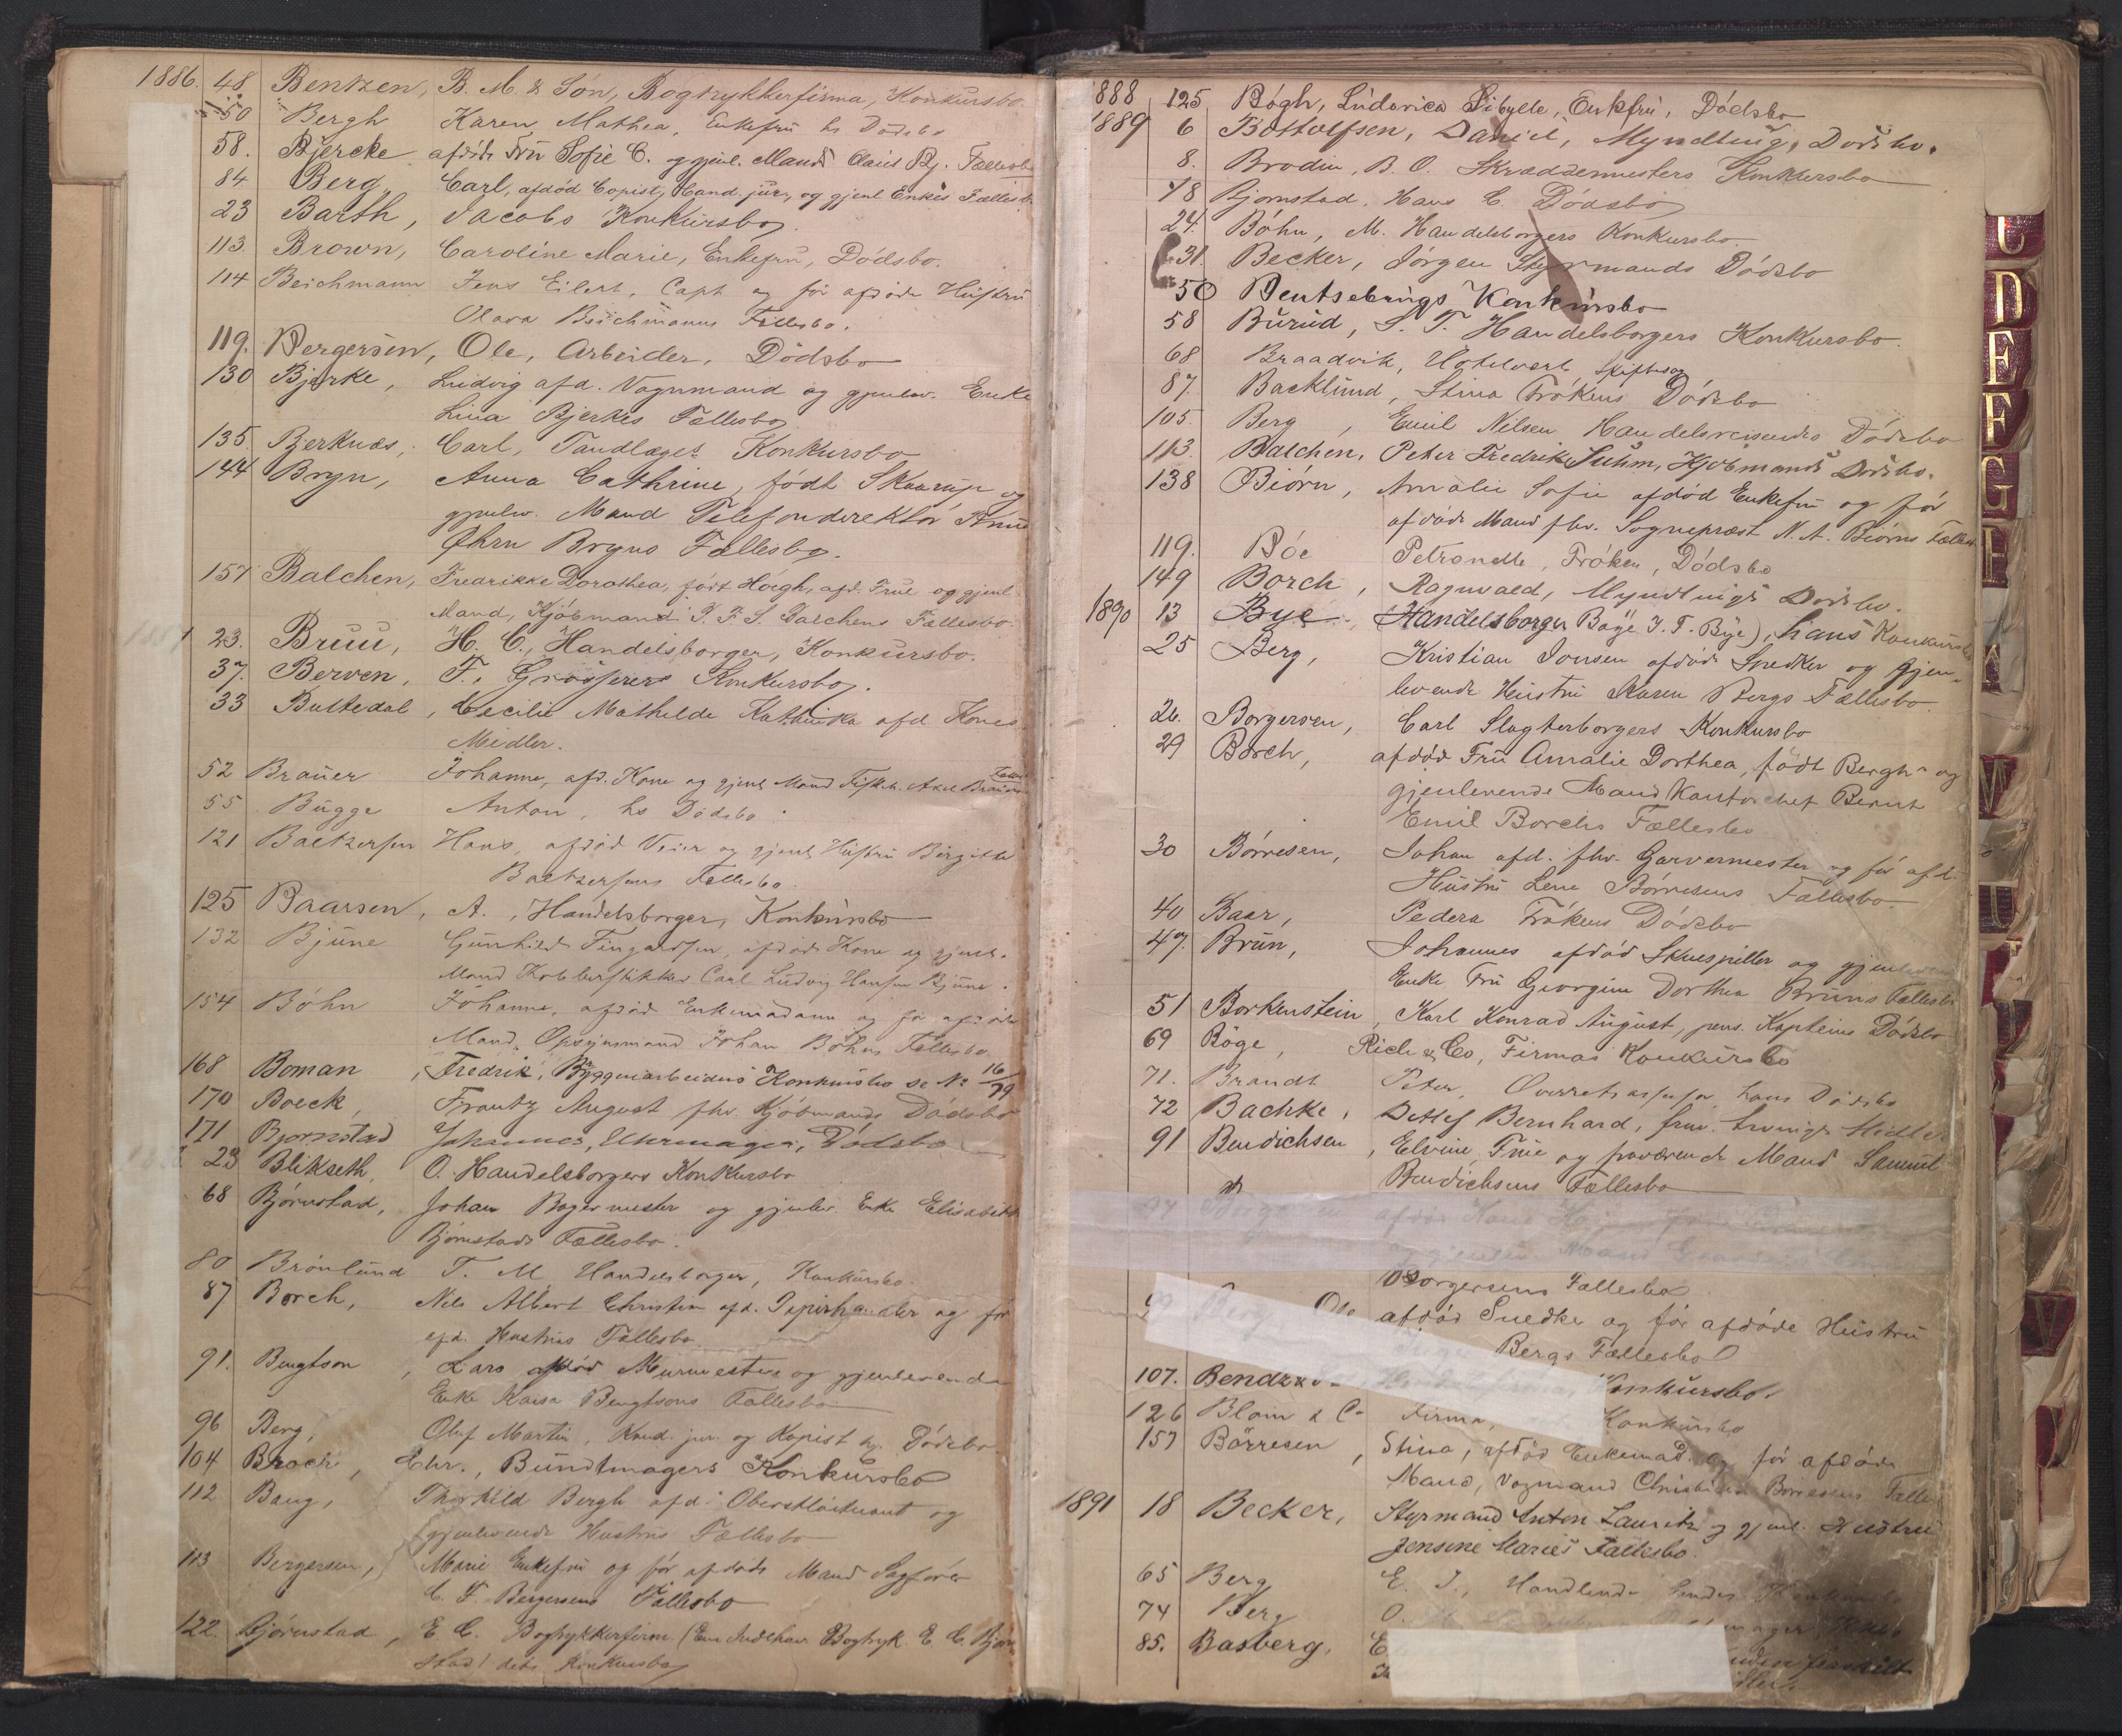 1886. 48. Bentzen, B. M. & Søn, Bogtrykkerfirma, Konkursbo.
50 Bergh Karen Mathea, Enkefru hs Dødsbo
58. Bjercke afdøde Fru Sofie C. og gjenl. Mands Claus Bj. Fællesbo
84 Berg, Carl, afdød Copist, Cand. jur., og gjenl Enkes Fællesb
23 Barth, Jacobs Konkursbo
113. Brown, Caroline Marie, Enkefru, Dødsbo.
114 Beichmann Jens Eilert, Capt og før afdøde Hustru
Olava Beichmanns Fællesbo.
119. Bergersen, Ole, Arbeider, Dødsbo
130 Bjerke, Ludvig afd. Vognmand og gjenlev. Enke
Lina Bjerkes Fællesbo
135. Bjerknæs, Carl, Tandlæges Konkursbo
144 Bryn, Anna Cathrine, født Skaarup og
gjenlev. Mand Telefondirektør Knud
Øhrn Bryns Fællesbo.
157 Balchen, Fredrikke Dorothea, født Høegh, afd. Frue og gjenl
Mand, Kjøbmand P. F. S. Balchens Fællesbo.
23. Bruu, H. C., Handelsborger, Konkursbo.
37. Berven, T. Grosserers Konkursbo.
33 Buttedal, Cecilie Mathilde Kathinka afd Kones
Midler.
52 Brauer Johanne, afd. Kone og gjenl Mand Fiskeh. Axel Brauers Fælles
55 Bugge Anton, hs Dødsbo
121 Baltzersen Hans, afdød Veier og gjenl Hustru Birgitte
Baltzersens Fællesbo.
125 Baarsen, A., Handelsborger, Konkursbo
132 Bjune Gunhild, afdøde Kone og gjenl.
Mand Kobberstikker Carl Ludvig Hansen Bjune.
154 Bøhn Johanne, afdød Enkemadam og før afdøde
Mand, Opsynsmand Johan Bøhns Fællesbo
168 Boman, Fredrik, Byggeriarbeiders Konkursbo se No 16/79
170 Boeck, Frantz August fhv. Kjøbmands Dødsbo
171 Bjornstad Johannes, Uhrmager, Dødsbo
23 Blikseth, O. Handelsborgers Konkursbo
68 Bjørnstad, Johan Bagermester og gjenlev Enke Elisabeth
Bjørnstads Fællesbo.
80 Brønlund T. M. Handelsborger, Konkursbo.
87 Borch, Nils Albert Christian afd. Papirhandler og før
afd. Hustrus Fællesbo
91. Bengtson, Lars afdød Murmester og gjenlevende
Enke Kaisa Bengtsons Fællesbo
96 Berg, Oluf Martin, Kand. jur. og Kopist hs. Dødsbo
104 Broch, Chr., Bundtmagers Konkursbo
112 Baug, Thorkild Bergh afd. Oberstløitnant og
gjenlevende Hustrus Fællesbo
113 Bergersen, Marie Enkefru og før afdøde Mand Sagfører
C. F. Bergersens Fællesbo
122. Bjørnstad, E. C. Bogtrykkerfirma (Bogtryk. E. C. Bjørn
stad) dets Konkursbo
1888 125 Bøgh, Ludovica Sibylle, Enkefru, Dødsbo
1889 6 Bottolfsen, Daniel, Myndtling, Dødsbo.
8. Brodin, B. O. Skræddermesters Konkursbo
18 Bjørnstad, Hans C. Dødsbo
24. Bøhn, M. Handelsborgers Konkursbo
31 Becker, Jørgen Styrmands Dødsbo
50 Bentsebrugs Konkursbo
58 Burud, S. T. Handelsborgers Konkursbo.
68 Braadvik, Hotelvert Skiftesag
87. Backlund, Stina Frøkens Dødsbo
105. Berg, Emil Nilsen Handelsreisendes Dødsbo
113. Balchen, Peter Fredrik Suhm, Kjøbmands Dødsbo.
138 Biørn, Amalie Sofie afdød Enkefru og før
afdøde Mand fhv. Sognepræst N. A. Biørns Fælles
119. Bøe Petronelle, Frøken, Dødsbo
149 Borch, Ragnvald, Myndlings Dødsbo.
1890 13 Bye, (Handelsborger Bøge J. F. Bye), hans Konkursbo
25 Berg, Kristian Jonsen afdøde Snedker og gjen-
levende Hustru Karen Bergs Fællesbo.
26. Borgersen, Carl Slagterborgers Konkursbo
29 Borch, afdøde Fru Amalie Dorthea, født Bergh og
gjenlevende Mand Kontorchef Bernt
Emil Borchs Fællesbo
30 Børresen, Johan afd. fhv. Garvermester og før afd.
Hustru Lene Børresens Fællesbo.
40 Baar, Pedera Frøkens Dødsbo
47. Brun, Johannes afdød Skuespiller og gjenlevende
Enke Fru Georgine Dorthea Bruns Fællesbo
51 Borkenstein, Karl Konrad August, pens. Kapteins Dødsbo
69 Bøge, Rich & Co, Firmas Konkursbo
71. Brandt Peter, Overretsassessor, hans Dødsbo
72 Bachke, Detlef Bernhard, Midler
91 Bendichsen, Elvine, Frue og fraværende Mand Samuel
Bendichsens Fællesbo
afdød
og gjenlev. Mand
Borgersens Fællesbo
Berg Ole afdød Snedker og før afdøde Hustru
Bergs Fællesbo
107. Konkursbo.
126 Blom & Co Firma, Konkursbo
157 Børresen, Stina, afdød Enkemad. og før afdøde
Mand, Vogmand Christian Børresens Fælles
1891 18 Becker, Styrmand Anton Lauritz og gjenl. Hustru
Jensine Maries Fællesbo.
65 Berg E. J., Handlende
74 Berg O.
85. Basberg,